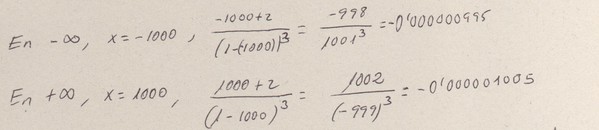 En -∞, x=-1000, (-1000+2)/(1-(-1000))³ = -998/1001³ = -0'000000995
En +∞, x=1000, (1000+2)/(1-1000)³ = 1002/(-999)³ = -0'000001005